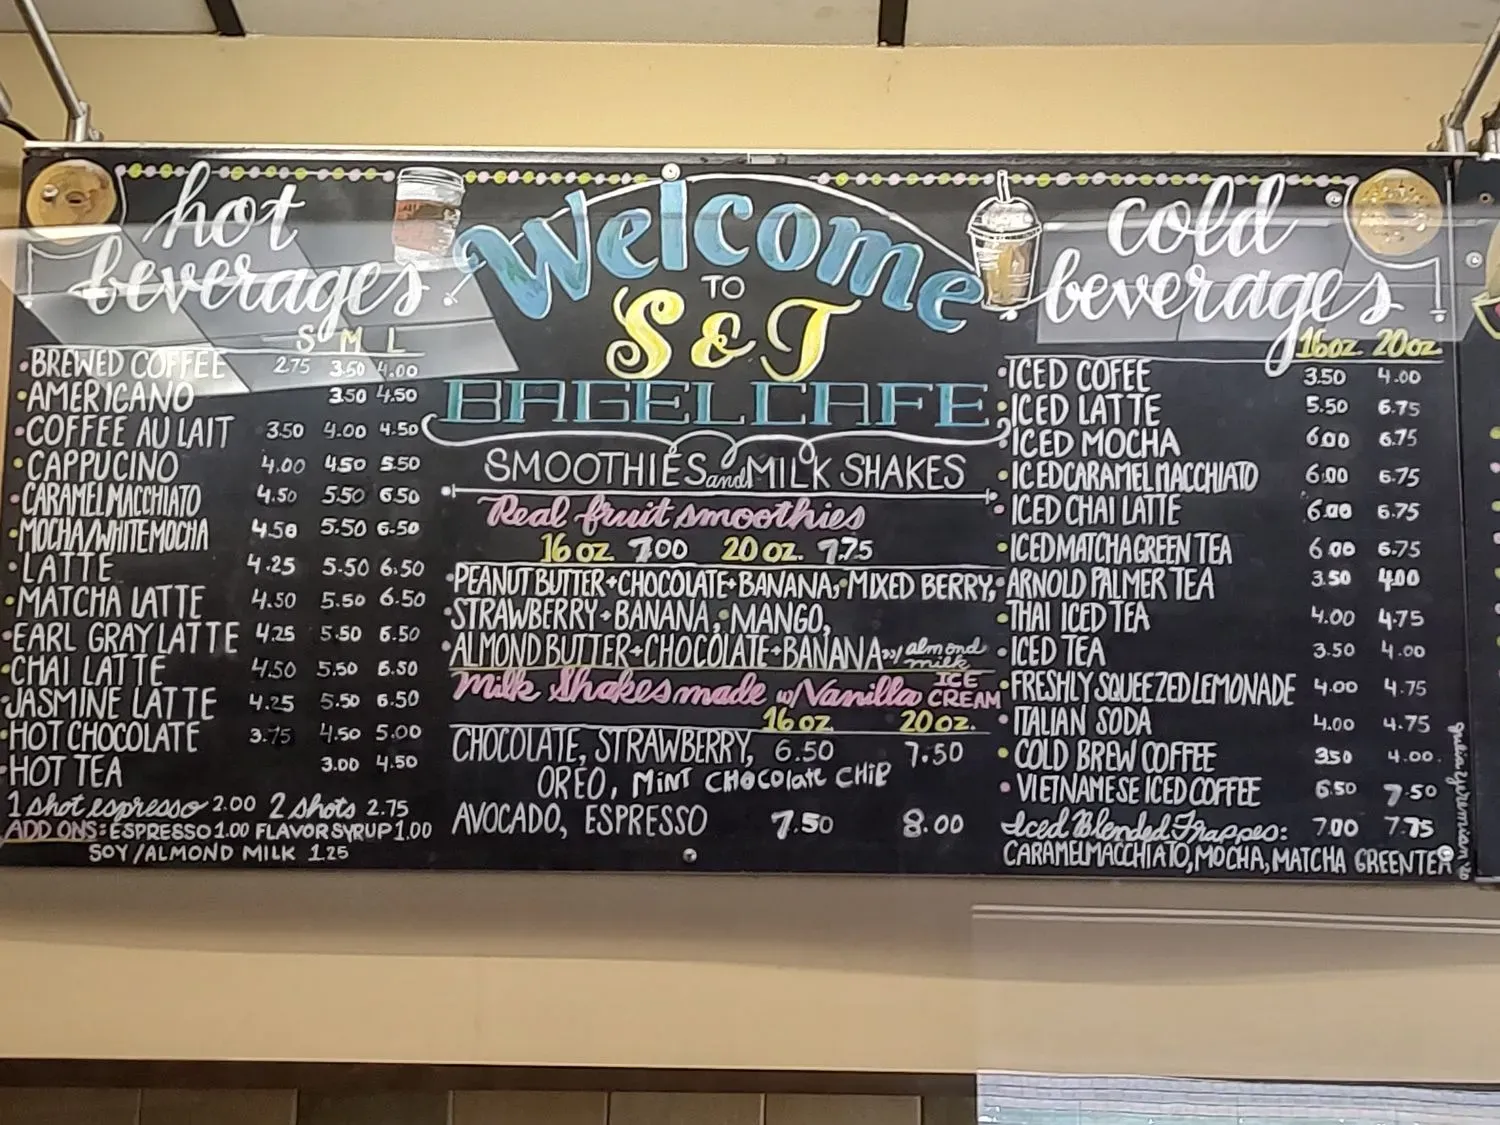 hot
beverages
S M L
•BREWED COFFEE 2.75 3.50 4.00
•AMERICANO 3.50 4.50
•COFFEE AU LAIT 3.50 4.00 4.50
•CAPPUCINO 4.00 4.50 5.50
•CARAMEL MACCHIATO 4.50 5.50 6.50
•MOCHA/WHITE MOCHA 4.50 5.50 6.50
•LATTE 4.25 5.50 6.50
•MATCHA LATTE 4.50 5.50 6.50
•EARL GRAY LATTE 4.25 5.50 6.50
•CHAI LATTE 4.50 5.50 6.50
•JASMINE LATTE 4.25 5.50 6.50
•HOT CHOCOLATE 3.75 4.50 5.00
•HOT TEA 3.00 4.50
1 shot espresso 2.00 2 shots 2.75
ADD ONS: ESPRESSO 1.00 FLAVOR SYRUP 1.00
SOY/ALMOND MILK 1.25
Welcome
TO
S & T
BAGEL CAFE
SMOOTHIES and MILK SHAKES
Real fruit smoothies
16 oz. 7.00 20 oz. 7.75
•PEANUT BUTTER+CHOCOLATE+BANANA,•MIXED BERRY,
•STRAWBERRY+BANANA,•MANGO,
•ALMOND BUTTER+CHOCOLATE+BANANA w/ almond milk
Milk Shakes made w/ Vanilla ICE CREAM
16 oz. 20 oz.
CHOCOLATE, STRAWBERRY, 6.50 7.50
OREO, MINT CHOCOLATE CHIP
AVOCADO, ESPRESSO 7.50 8.00
cold
beverages
16oz. 20oz.
•ICED COFEE 3.50 4.00
•ICED LATTE 5.50 6.75
•ICED MOCHA 6.00 6.75
•ICED CARAMEL MACCHIATO 6.00 6.75
•ICED CHAI LATTE 6.00 6.75
•ICED MATCHA GREEN TEA 6.00 6.75
•ARNOLD PALMER TEA 3.50 4.00
•THAI ICED TEA 4.00 4.75
•ICED TEA 3.50 4.00
•FRESHLY SQUEEZED LEMONADE 4.00 4.75
•ITALIAN SODA 4.00 4.75
•COLD BREW COFFEE 3.50 4.00
•VIETNAMESE ICED COFFEE 6.50 7.50
Iced Blended Frappes: 7.00 7.75
CARAMEL MACCHIATO, MOCHA, MATCHA GREEN TEA